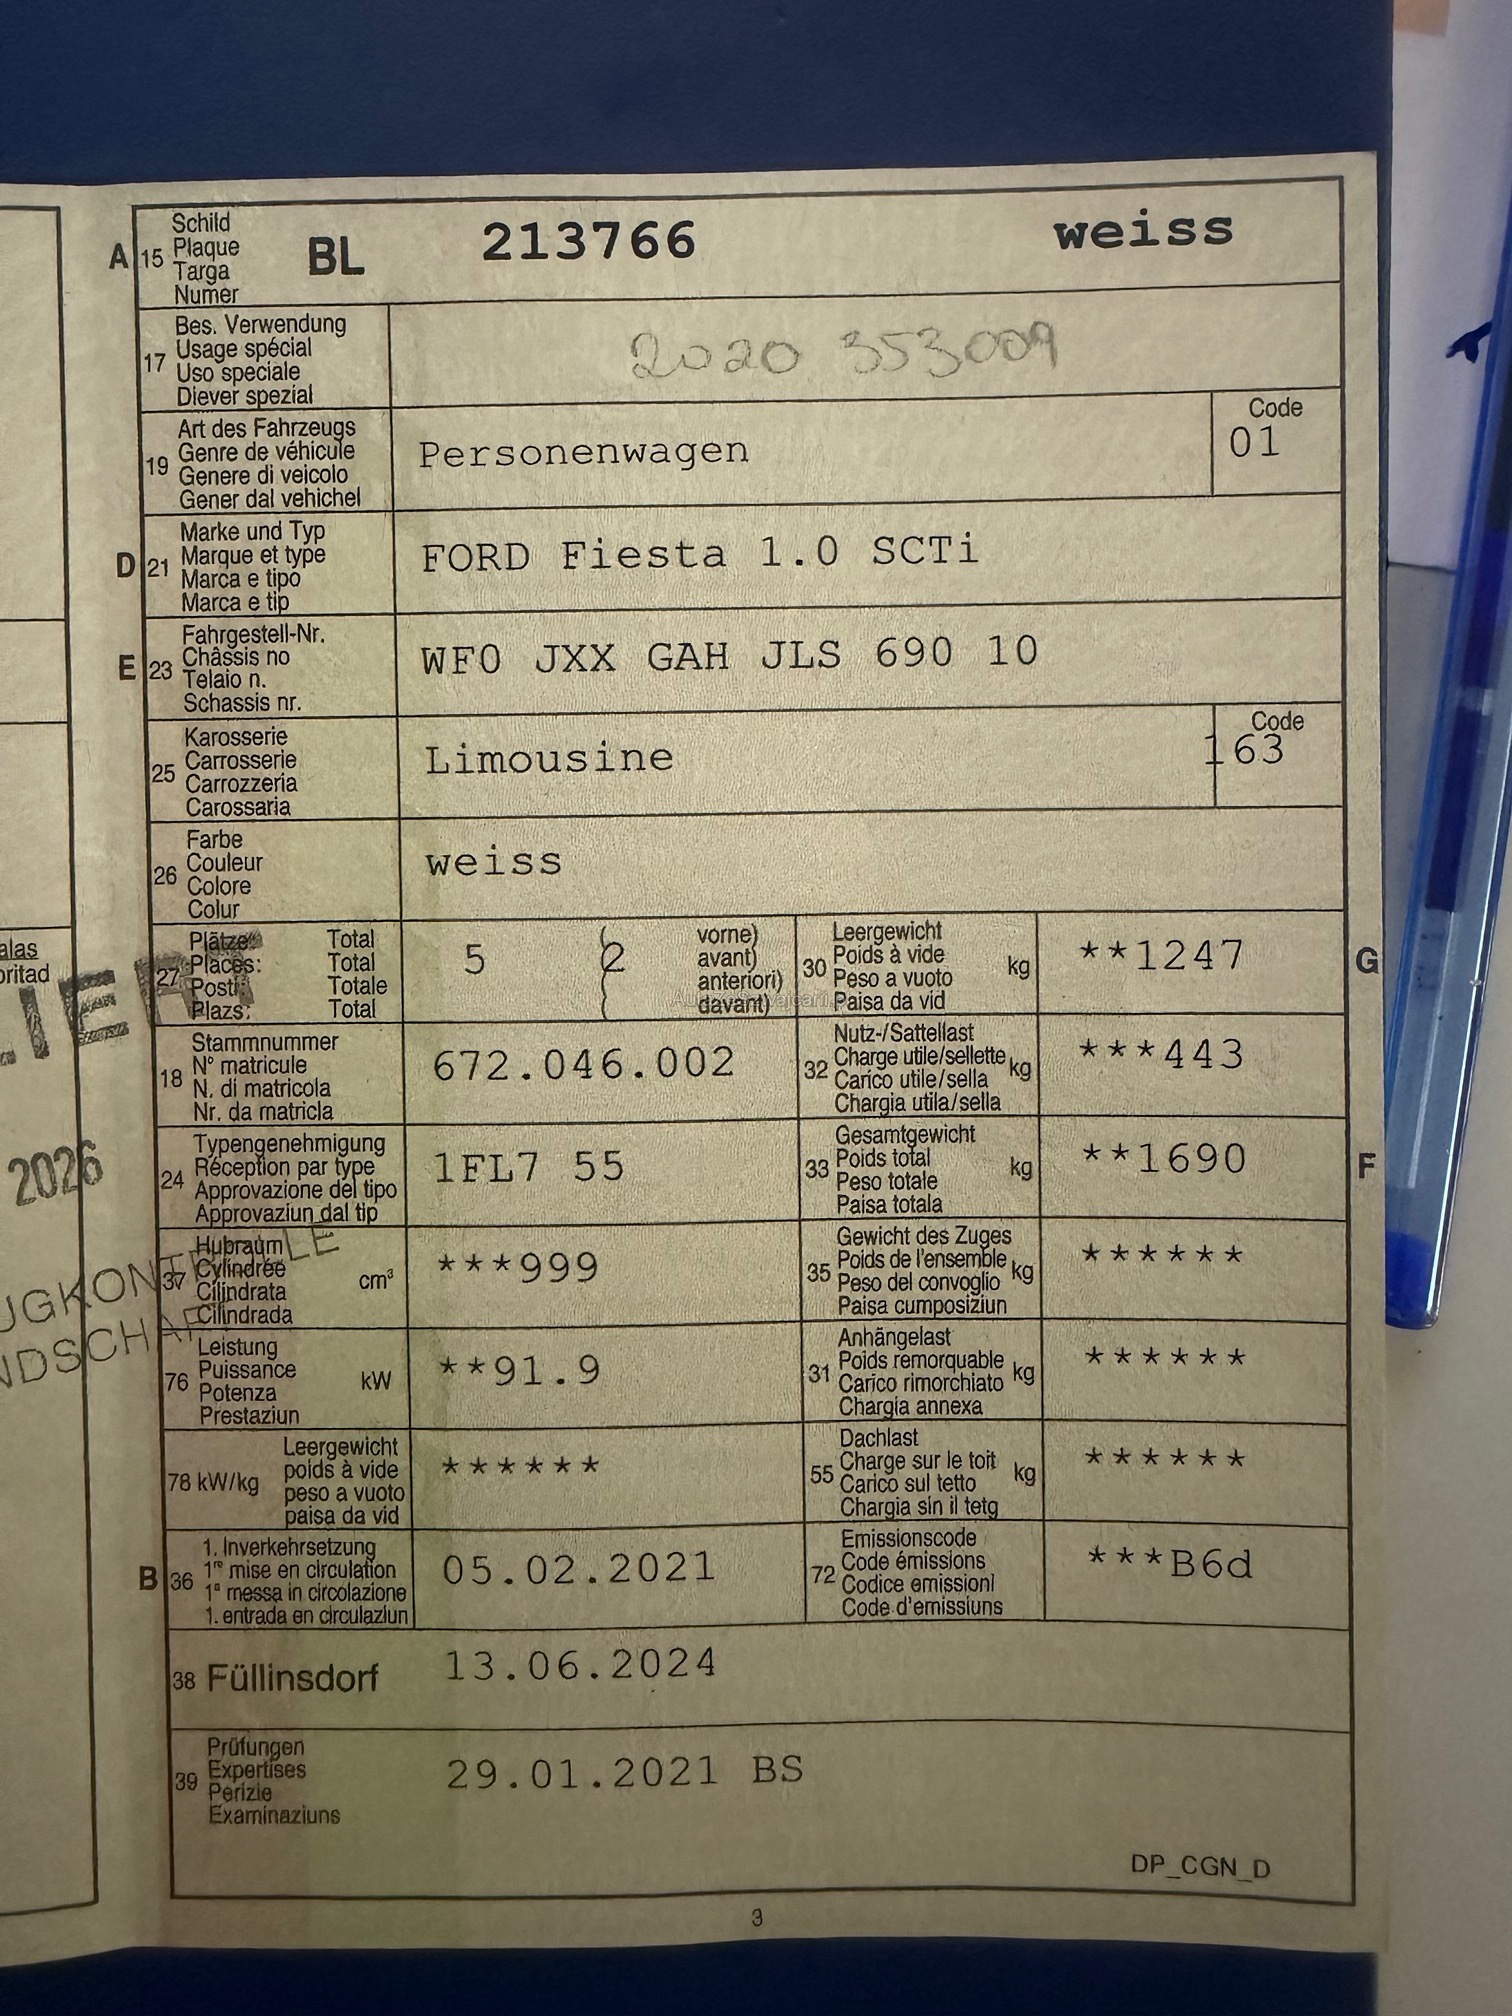 A 15 Schild Plaque Targa Numer BL 213766 weiss
17 Bes. Verwendung
Usage spécial
Uso speciale
Diever spezial
2020 353009
19 Art des Fahrzeugs
Genre de véhicule
Genere di veicolo
Gener dal vehichel
Personenwagen
Code
01
D 21 Marke und Typ
Marque et type
Marca e tipo
Marca e tip
FORD Fiesta 1.0 SCTi
E 23 Fahrgestell-Nr.
Châssis no
Telaio n.
Schassis nr.
WF0 JXX GAH JLS 690 10
25 Karosserie
Carrosserie
Carrozzeria
Carossaria
Limousine
Code
163
26 Farbe
Couleur
Colore
Colur
weiss
alas
oritad
27 Plätze: Total
Places: Total
Posti: Totale
Plazs: Total
5 (2 vorne)
avant)
anteriori)
davant)
30 Leergewicht
Poids à vide
Peso a vuoto
Paisa da vid
kg
**1247
G
18 Stammnummer
N° matricule
N. di matricola
Nr. da matricla
672.046.002
32 Nutz-/Sattellast
Charge utile/sellette
Carico utile/sella
Chargia utila/sella
kg
***443
2026
24 Typengenehmigung
Réception par type
Approvazione del tipo
Approvaziun dal tip
1FL7 55
33 Gesamtgewicht
Poids total
Peso totale
Paisa totala
kg
**1690
F
37 Hubraum
Cylindrée
Cilindrata
Cilindrada
cm³
***999
35 Gewicht des Zuges
Poids de l'ensemble
Peso del convoglio
Paisa cumposiziun
kg
******
76 Leistung
Puissance
Potenza
Prestaziun
kW
**91.9
31 Anhängelast
Poids remorquable
Carico rimorchiato
Chargia annexa
kg
******
78 kW/kg
Leergewicht
poids à vide
peso a vuoto
paisa da vid
******
55 Dachlast
Charge sur le toit
Carico sul tetto
Chargia sin il tetg
kg
******
B 36 1. Inverkehrsetzung
1re mise en circulation
1a messa in circolazione
1. entrada en circulaziun
05.02.2021
72 Emissionscode
Code émissions
Codice emissioni
Code d'emissiuns
***B6d
38 Füllinsdorf 13.06.2024
39 Prüfungen
Expertises
Perizie
Examinaziuns
29.01.2021 BS
DP_CGN_D
3